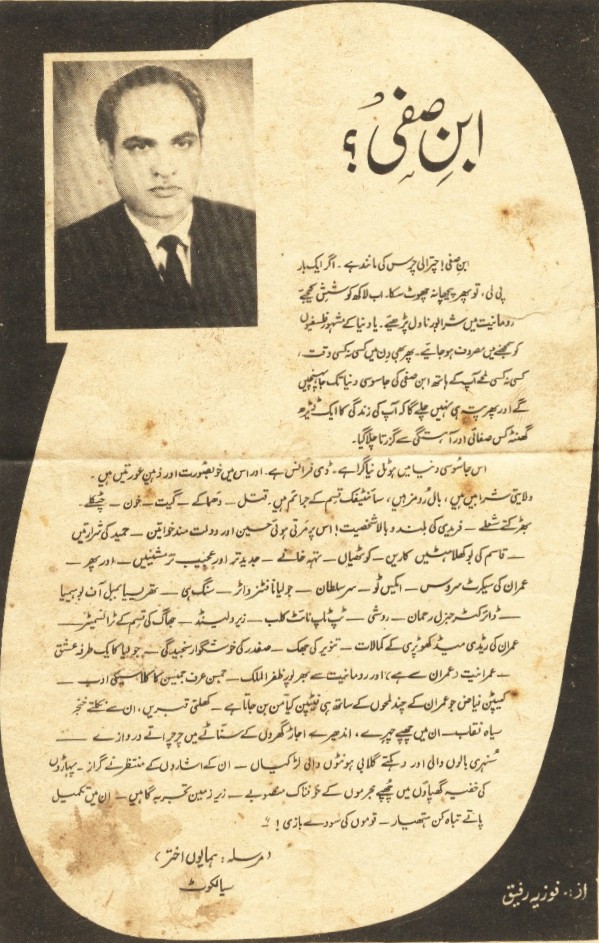 ابنِ صفی ؟
ابنِ صفی! چترالی چرس کی مانند ہے ۔ اگر ایک بار
پی لی، تو پھر پیچھا نہ چھوٹ سکا ۔ اب لاکھ کوشش کیجیے
رومانیت میں شرابور ناول پڑھیے ۔ یا دنیا کے مشہور فلسفیوں
کو سمجھنے میں مصروف ہو جائیے ۔ پھر بھی دن میں کسی نہ کسی وقت ،
کسی نہ کسی لمحے آپ کے ہاتھ ابن صفی کی جاسوسی دنیا تک جا پہنچیں
گے اور پھر پتہ ہی نہیں چلے گا کہ آپ کی زندگی کا ایک ڈیڑھ
گھنٹہ کس صفائی اور آہستگی سے گزرتا چلا گیا ۔
اس جاسوسی دنیا میں ہوٹل نیاگرا ہے ۔ ڈی فرانس ہے ۔ اور اس میں خوبصورت اور ذہین عورتیں ہیں ۔
ولایتی شرابیں ہیں ، بال رومز ہیں ، سائنٹیفک قسم کے جرائم ہیں ۔ قتل – دھماکے – گیت – خون – چٹکلے –
بھڑکتے شعلے – فریدی کی بلند و بالا شخصیت! اس پر مرتی ہوئی حسین اور دولت مند خواتین – حمید کی شرارتیں
– قاسم کی بوکھلاہٹیں کاریں – کوٹھیاں – تہہ خانے – جدید تر اور عجیب تر مشینیں – اور پھر –
عمران کی سیکرٹ سروس – ایکس ٹو – سر سلطان – جولیانا فٹنر واٹر – سنگ ہی – تھریسیا بمبل آف بوہیمیا
– ڈائرکٹر جنرل رحمان – روشی – ٹپ ٹاپ نائٹ کلب – زیرو لینڈ – جھاگ کی قسم کے ٹرانسمیٹر –
عمران کی ریڈی میڈ کھوپڑی کے کمالات – تنویر کی جھک – صفدر کی خوشگوار سنجیدگی – جولیا کا یک طرفہ عشق
– عمرانیت (عمران سے ہے) اور رومانیت سے بھرپور ظفر الملک – جمن عرف جیمسن کا کلاسیکی ادب –
کیپٹن فیاض جو عمران کے چند لمحوں کے ساتھ ہی
سیاہ نقاب – ان میں چھپے چہرے ، اندھیرے اجاڑ گھروں کے سناٹے میں چرچراتے دروازے –
سنہری بالوں والی اور دہکتے گلابی ہونٹوں والی لڑکیاں – ان کے اشاروں کے منتظر نے گراز – پہاڑوں
کی خفیہ گپھاؤں میں چھپے مجرموں کے خوفناک منصوبے – زیر زمین تجربہ گاہیں – ان میں تکمیل
پاتے تباہ کن ہتھیار – قوموں کی سودے بازی ! –
( مرسلہ : ہمایوں اختر )
سیالکوٹ
از :۔ فوزیہ رفیق